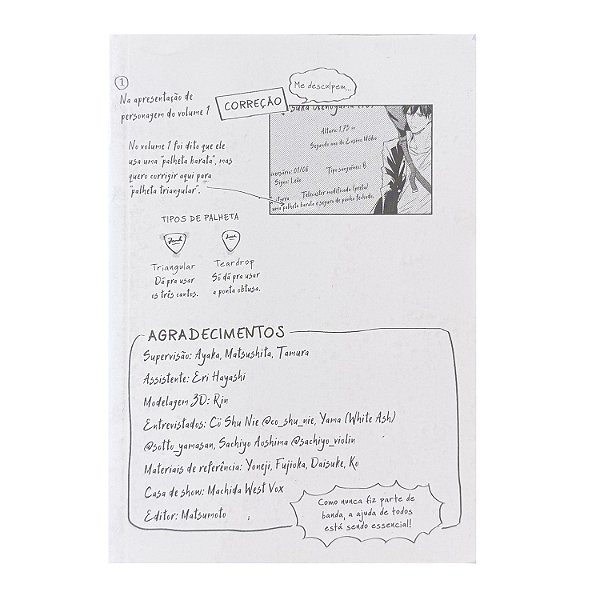 1
Na apresentação de
personagem do volume 1
CORREÇÃO
Me desculpem...
Altura: 1,75 m
Segundo ano do Ensino Médio
Tipo sanguíneo: B
Signo: Leão
Telecaster modificada (preta)
uma palheta barata e segura de punho fechado.
No volume 1 foi dito que ele
usa uma "palheta barata", mas
quero corrigir aqui para
"palheta triangular".
TIPOS DE PALHETA
Triangular
Dá pra usar
os três cantos.
Teardrop
Só dá pra usar
a ponta obtusa.
AGRADECIMENTOS
Supervisão: Ayaka, Matsushita, Tamura
Assistente: Eri Hayashi
Modelagem 3D: Rin
Entrevistados: Cö Shu Nie @co_shu_nie, Yama (White Ash)
@sotto_yamasan, Sachiyo Aoshima @sachiyo_violin
Materiais de referência: Yoneji, Fujioka, Daisuke, Ko
Casa de show: Machida West Vox
Editor: Matsumoto
Como nunca fiz parte de
banda, a ajuda de todos
está sendo essencial!